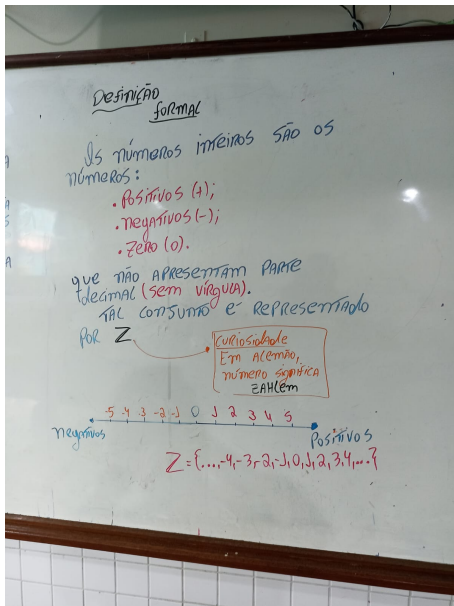 Definição
formal
Os números inteiros são os
números:
. Positivos (+);
. negativos (-);
. zero (0).
que não apresentam parte
decimal (sem vírgula).
Tal conjunto é representado
por Z
Curiosidade
Em Alemão,
número significa
ZAHlem
-5 -4 -3 -2 -1 0 1 2 3 4 5
negativos
Positivos
Z = {..., -4, -3, -2, -1, 0, 1, 2, 3, 4, ...}